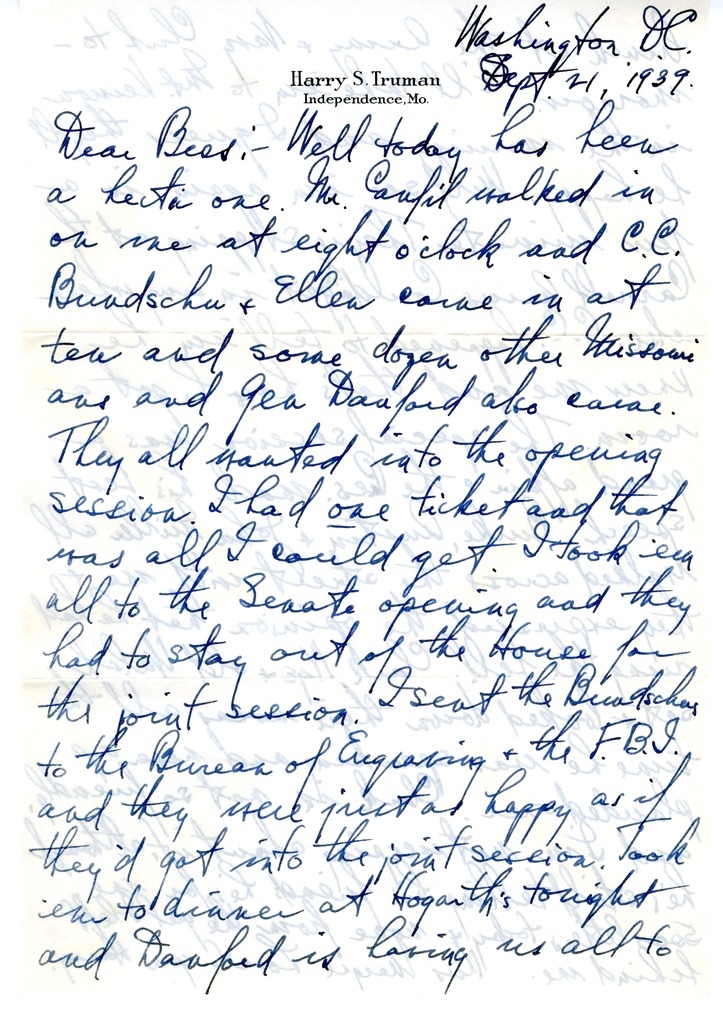 Washington DC.
Sept. 21, 1939.
Harry S. Truman
Independence, Mo.
Dear Bess:- Well today has been
a hectic one. Mr. Canfil walked in
on me at eight o'clock and C.C.
Bundschu & Ellen came in at
ten and some dozen other Missouri
ans and Gen Danford also came.
They all wanted into the opening
session. I had one ticket and that
was all I could get I took 'em
all to the Senate opening and they
had to stay out of the House for
the joint session. I sent the Bundschus
to the Bureau of Engraving & the F.B.I.
and they were just as happy as if
they'd got into the joint session. Took
'em to dinner at Hogarth's tonight
and Danford is having us all to